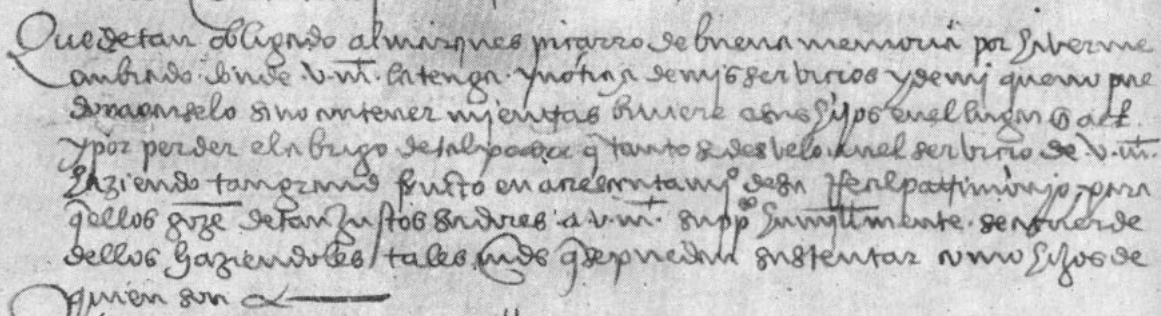 Quedetan obligado al marques piçarro de buena memoria por haverme
anbiado donde .v.m. tenga. y notiçia de mis serbicios y de mi que no pue
sino en tener mientras biviere a sus hijos en el lugar
y por perder el abrigo de tal que tanto se desvelo en el serbicio de .v.m.
haziendo tan grand fructo en acreçentamjº de su rreal patrimonjo y para
qellos goze de tan justos sudores .a.v.m. suppco humillmente. se acuerde
dellos haziendoles tales mds q se puedan sustentar como hijos de
quien son